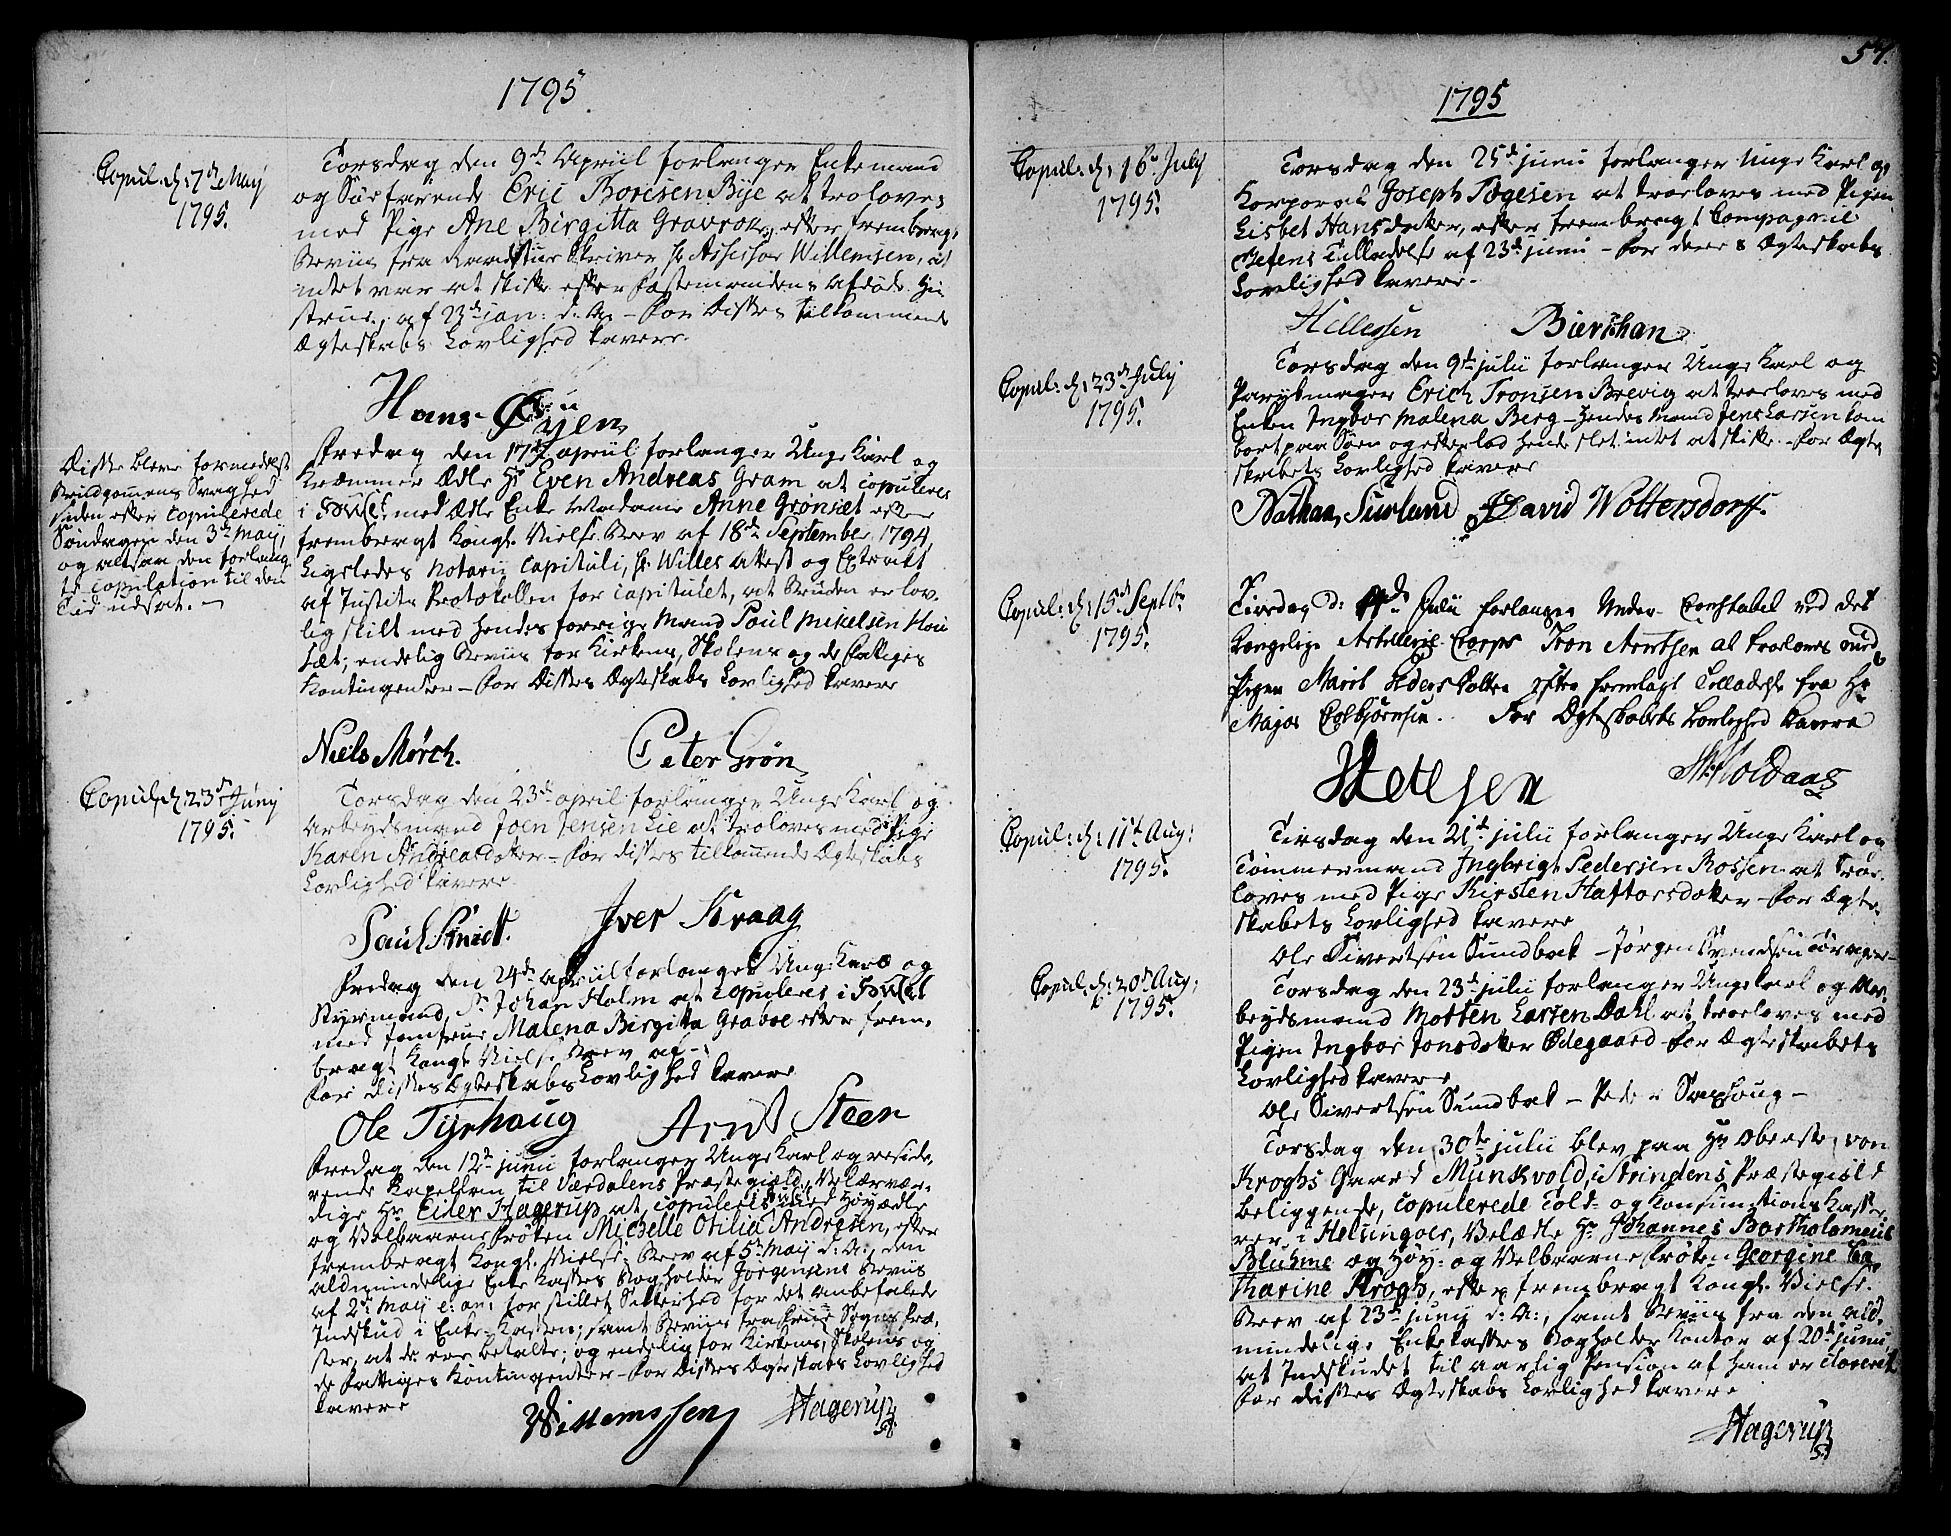 1795
Copul: d: 7de Maij
1795.
Torsdag den 9de Apriil forlanger Enkemand
og Søefarende Eric Boresen Bye at troloves
med Pige Ane Birgitta Gravrok, efter frembragt
Beviis fra Raadstue Skriver Hr Assessor Willemsen, at
intet var at skifte efter Fæstemandens afdøde Hu
strue, af 23de Jan: d: A: – For Disses tilkommende
Ægteskabs Lovlighed cavere.
Hans Øyen
Disse bleve formedelst
Brudgomens Svaghed
siden efter Copulerede
Søndagen den 3de Maij,
og altsaa den forlang
te Copulation til den
Tid udsat. –
Fredag den 17de apriil forlanger Unge Karl og
Kræmmer Ædle Hr Even Andreas Gram at copuleres
i Huset med Ædle Enke Madame Anne Grønset efter
frembragt Kongl. Vielse Brev af 18de September 1794,
Ligeledes Notarii Capituli, Hr Willes Attest og Extrakt
af Justits Protokollen for Capitulet, at Bruden er lov-
lig skilt med hendes forrige Mand Poul Mikelsen Hou
sæt; endelig Beviis for Kirkens, Skolens og de Fattiges
Kontingenter – For Disses Ægteskabs Lovlighed cavere
Niels Mørch. Peter Grøn
Copul: d: 23de Junij
1795.
Torsdag den 23de april forlanger Unge Karl og
Arbeydsmand Joen Jensen Lie at troloves med Pige
Karen Andreadoter – For disses tilkommende Ægteskabs
Lovlighed cavere.
Paul Smidt. Iver Kraag
Fredag den 24de apriil forlanger Unge Karl og
Styrmand, Sr Johan Holm at copuleres i Huset
med Jomfrue Malena Birgitta Graboe efter frem-
bragt Kongl. Vielse Brev af –
For disses Ægteskabs Lovlighed cavere
Ole Tyrhaug Arnt Steen
Fredag den 12te junii forlanger Unge Karl og reside-
rende Kapellan til Værdalens Præstegield, Velærvær-
dige Hr Eiler Hagerup at copuleres med Høyædle
og Velbaarne Frøken Michelle Otilia Andresen, efter
frembragt Kongl. Vielse Brev af 5te Maij d: A:, den
aldmindelige Enke Kasses Bogholder Jørgensens Beviis
af 2de Maij e: an: for stillet Sikkerhed for det anbefalede
Indskud i Enke-Kassen; samt Beviis fra Frue Sogns Præ-
ster, at de ere betalte; og endelig for Kirkens, Skolens og
de Fattiges Kontingenter – For Disses Ægteskabs Lovlighed
cavere
Willemssen Hagerup
57.
1795
Copul: d: 16de July
1795.
Torsdag den 25de junii forlanger Unge Karl og
Korporal Joseph Togesen at troeloves med Pigen
Lisbet Hansdoter, efter frembragt Compagnie
Chefens Tilladelse af 23de junii – For deres Ægteskabs
Lovlighed cavere.
Hillessen Bierchan
Copul: d: 23de July
1795.
Torsdag den 9de julii forlanger Unge Karl og
Parykmager Erich Tronsen Brevig at troeloves med
Enken Ingbor Malena Berg – Hendes Mand Jens Larsen kom
bort paa Søen og efterlod hende slet intet at skifte. – For Ægte
skabets Lovlighed cavere
Nathan Surland David Woltersdorff.
Copul: d: 15de Septbr
1795.
Tirsdag d: Julii forlanger Under Constabel ved det
Kongelige Artellerie Corps Iten Arntsen at troeloves med
Pigen Marit Pedersdatter efter fremlagt Tilladelse fra Hr
Major Colbjørnsen. For Ægteskabets Lovlighed Cavere
Hetlesen Holdaas
Copul: d: 11te Aug:
1795.
Tirsdag den 21de julii forlanger Unge Karl og
Tømmermand Ingbrigt Pedersen Rossen at troe-
loves med Pige Kirsten Haftorsdoter – For Ægte-
skabets Lovlighed cavere
Ole Sivertsen Sundbak – Jørgen Svendsen
Copul: d: 20de Aug:
1795.
Torsdag den 23de julii forlanger Unge Karl og Ar-
beydsmand Morten Larsen Dahl at troeloves med
Pigen Ingbor Jonsdoter Ødegaard – For Ægteskabets
Lovlighed cavere
Ole Sivertsen Sundbak – Peder Saxhoug –
Torsdag den 30te julii blev paa Hr Oberste von
Kroghs Gaard Munkvold, i Strindens Præstegield
beliggende, copulerede Told- og Konsumtions Kasse-
rer i Helsingøer, Velædle Hr Johannes Bartholomeus
Bluhme og Høy- og Velbaarne Frøken Georgine Ca-
tharine Krogh, efter frembragt Kongl. Vielse-
Brev af 23de junij d: A:, samt Beviis fra den ald-
mindelige Enkekasses Bogholder Kontor af 20de junii,
at Indskudet til aarlig Pension af ham er clareret
For disses Ægteskabs Lovlighed cavere
Hagerup